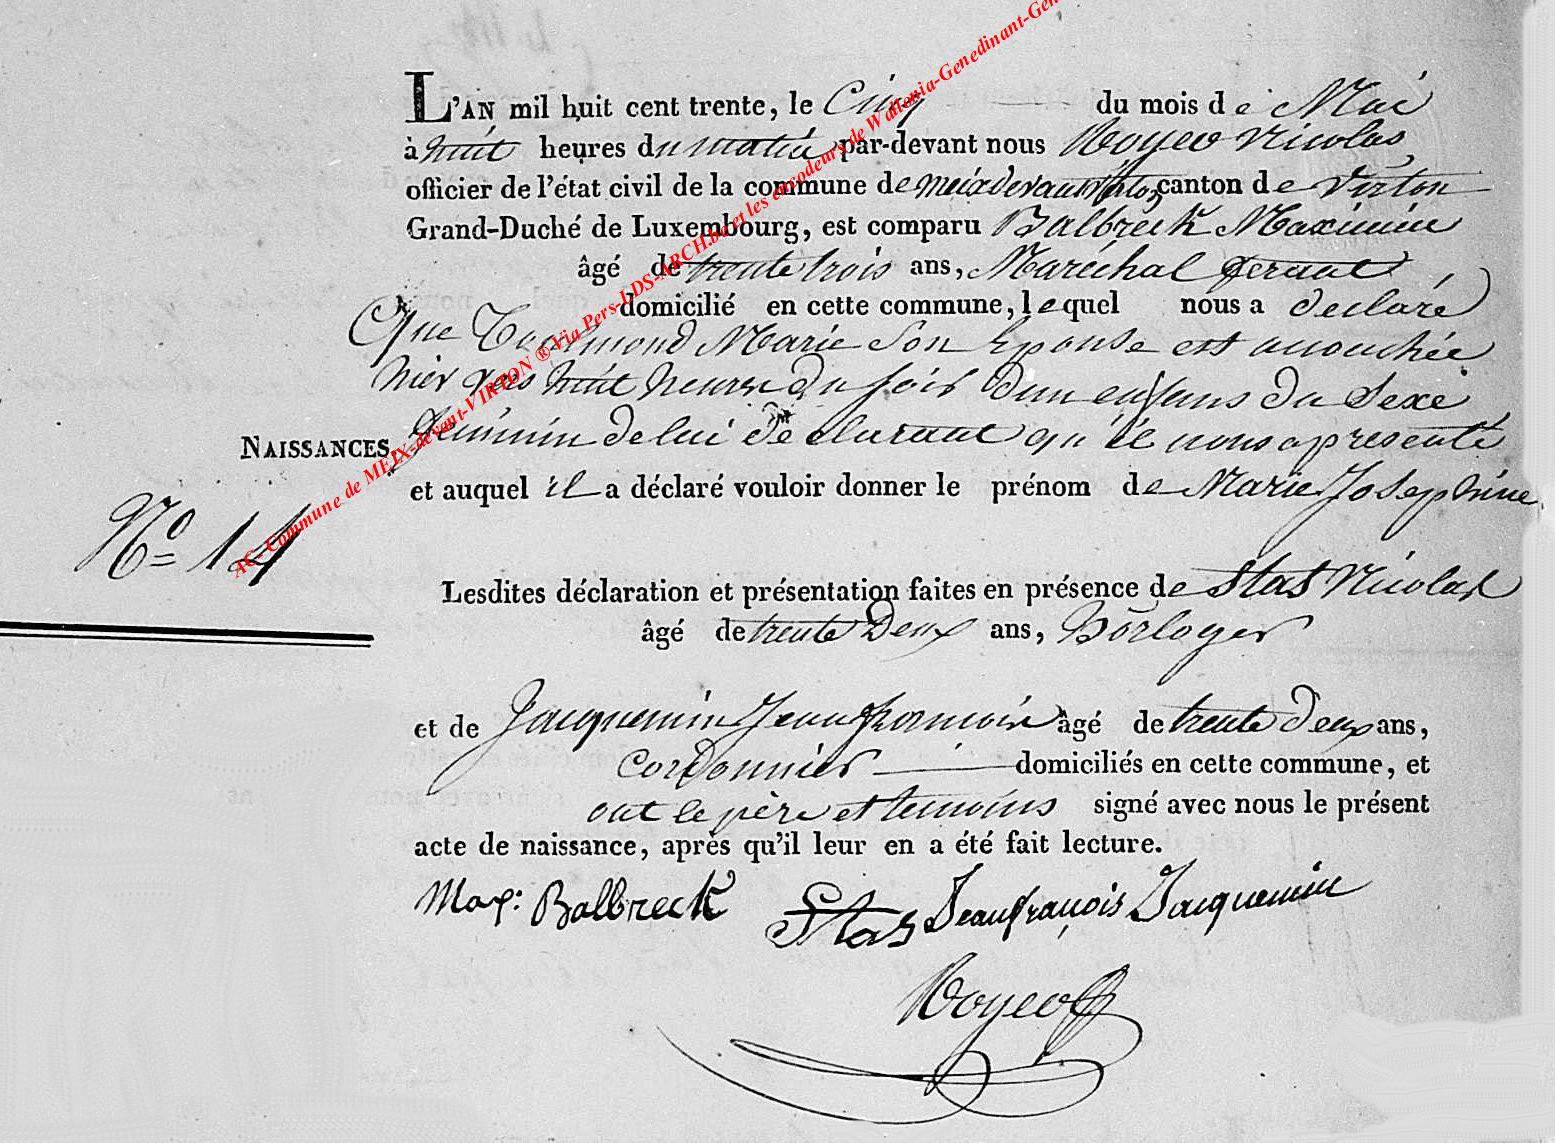 L'AN mil huit cent trente, le Cinq du mois de Mai
à huit heures du matin par-devant nous Nicolas
officier de l'état civil de la commune de meix devant virton canton de Virton
Grand-Duché de Luxembourg, est comparu Balbreck Maximin
âgé de trente trois ans, Maréchal ferant
domicilié en cette commune, lequel nous a declaré
Que Marie Son Epouse est accouchée
hier vers huit heures du soir d'un enfans du Sexe
NAISSANCES. feminin de lui declarant qu'il nous a presenté
et auquel il a déclaré vouloir donner le prénom de Marie Josephine
No 14
Lesdites déclaration et présentation faites en présence de Stas Nicolas
âgé de trente Deux ans, Horloger
et de Jacquemin Jean françois âgé de trente deux ans,
cordonnier domiciliés en cette commune, et
ont le père et temoins signé avec nous le présent
acte de naissance, après qu'il leur en a été fait lecture.
Max: Balbreck Stas Jean françois Jacquemin
AC- Commune de MEIX-devant-VIRTON ® Via Pers-LDS-ARCH.be et les encodeurs de Wallonia-Genedinant-Gen